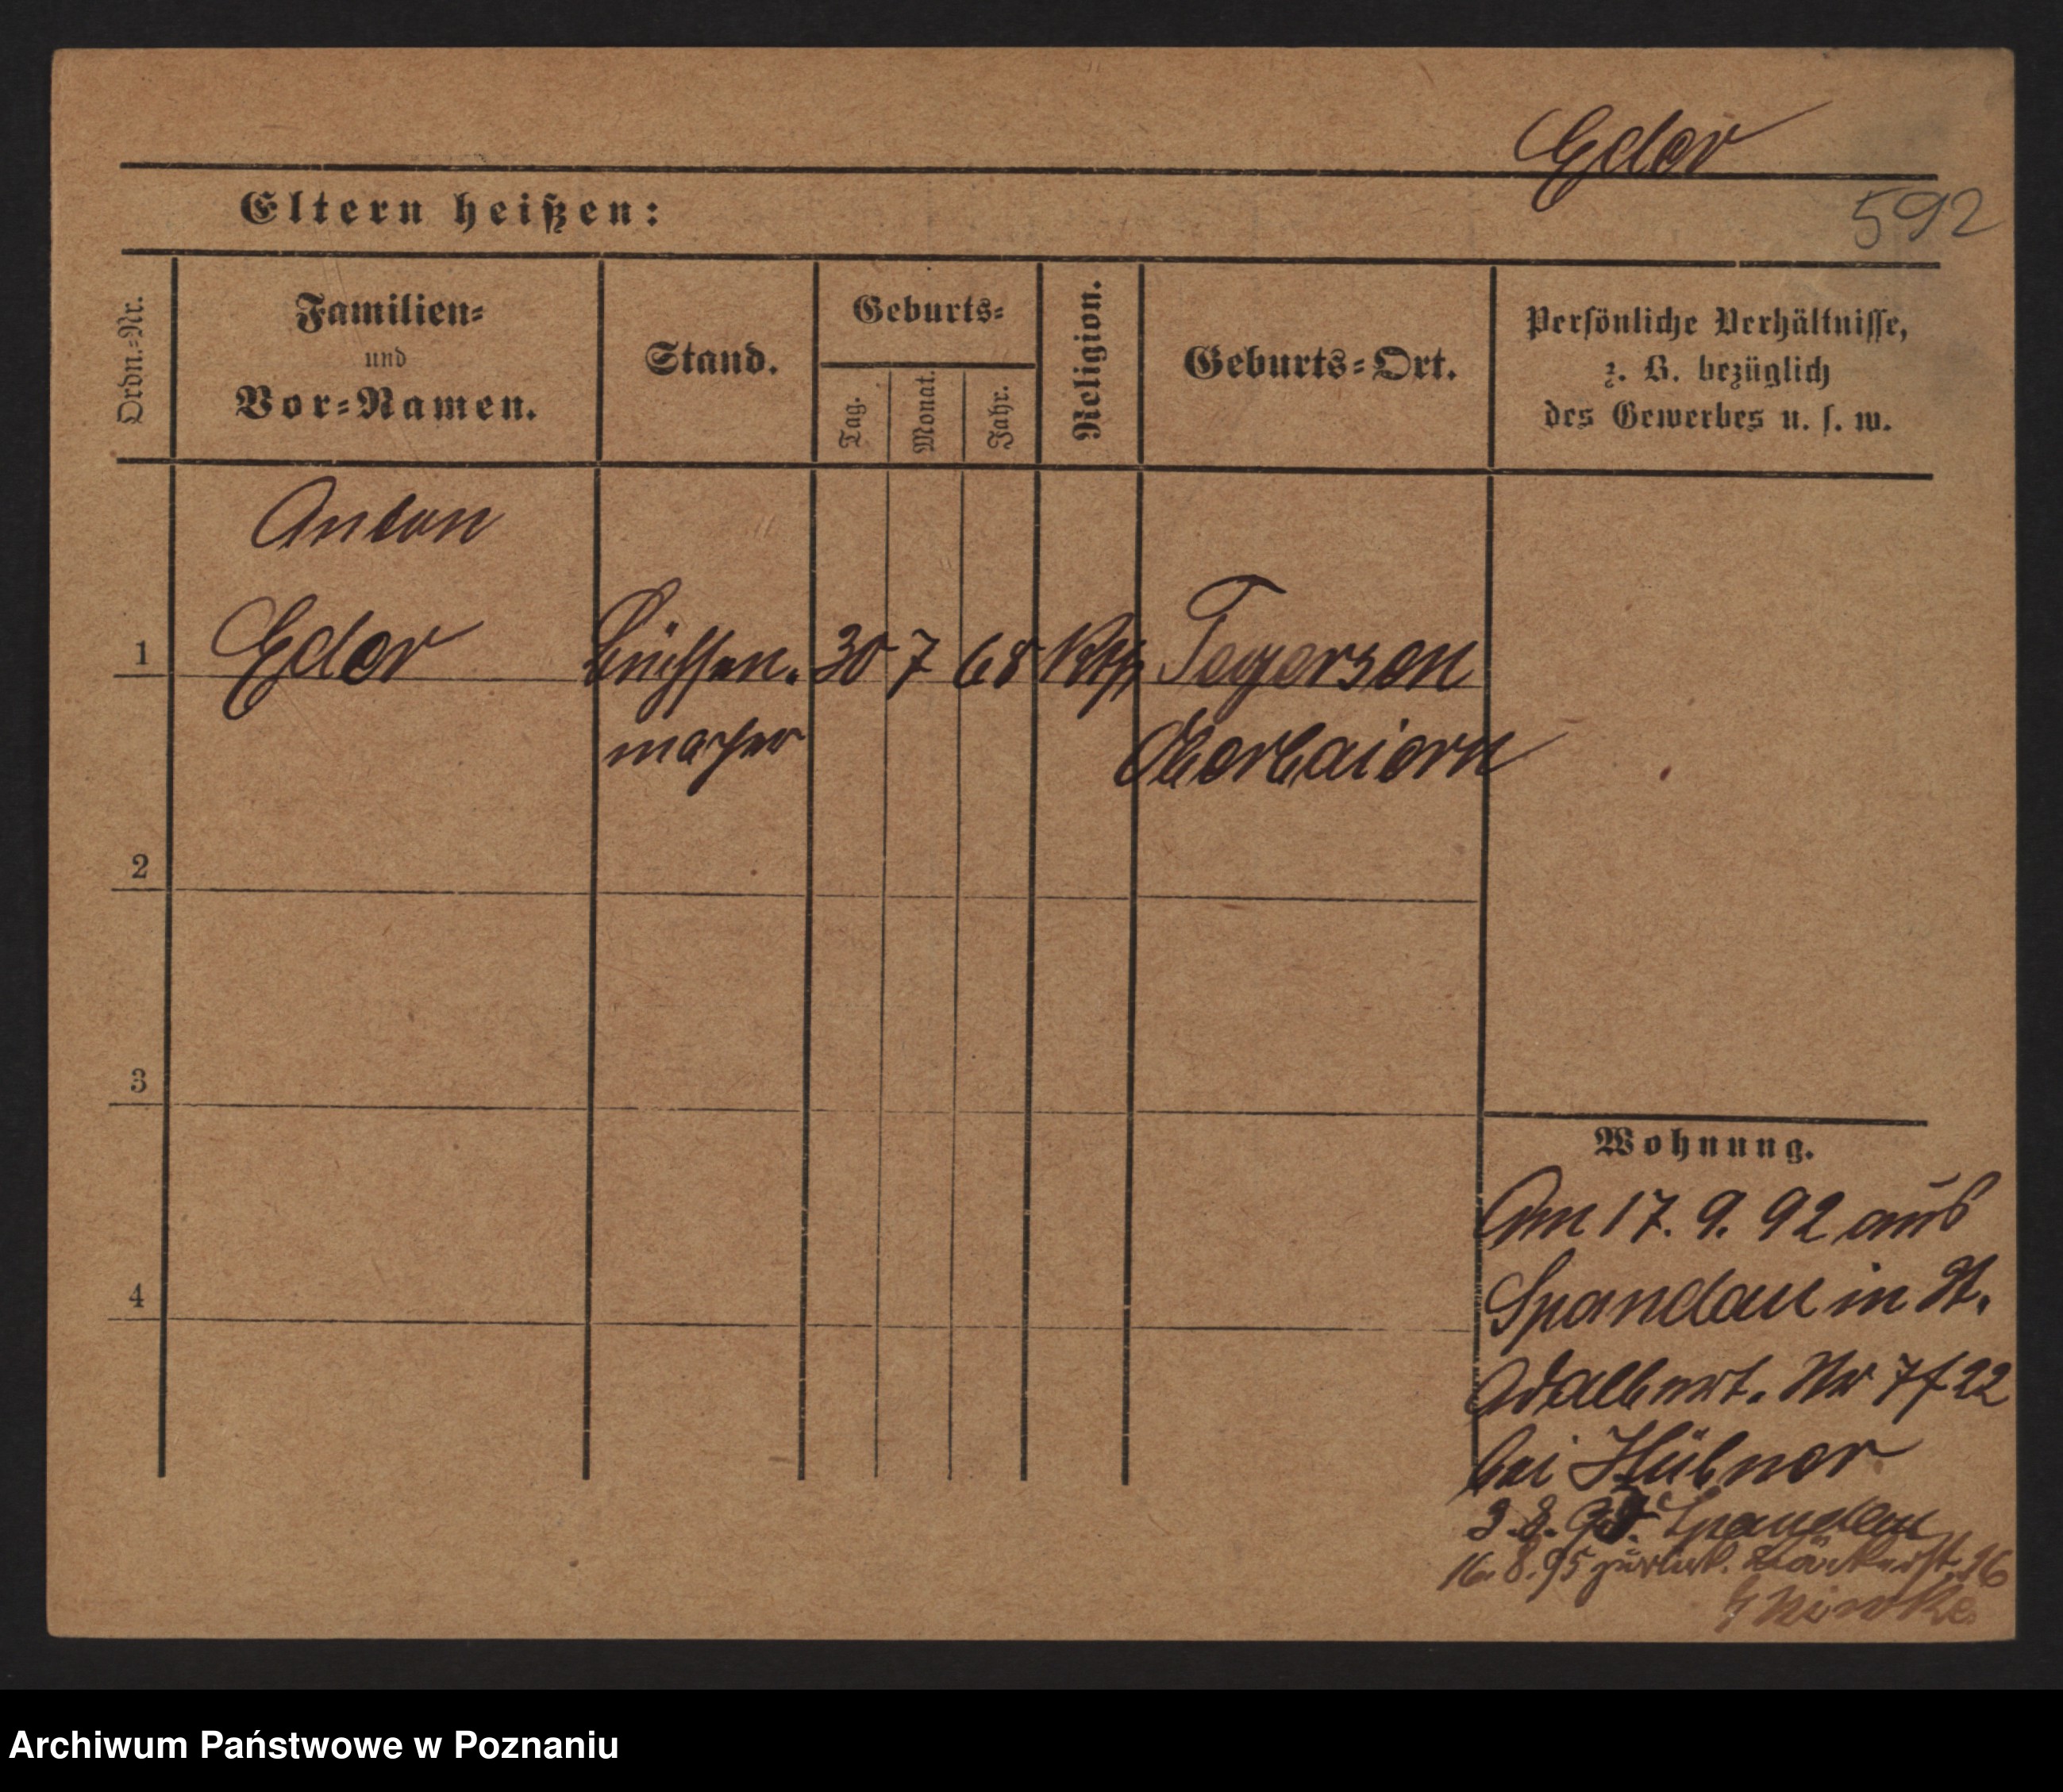 Eder
592
Eltern heißen:
Ordn.-Nr.
Familien-
und
Vor-Namen.
Stand.
Geburts-
Tag.
Monat.
Jahr.
Religion.
Geburts-Ort.
Persönliche Verhältnisse,
z. B. bezüglich
des Gewerbes u. s. w.
Anton
1 Eder Büchsen. 30 7 68 Kth Tegernsen
macher Oberbaiern
2
3
4
Wohnung.
Am 17. 9. 92 aus
Spandau in St.
Adalbert. Nr 7 f 22
bei Hübner
3. 8. Spandau
16. 8. 95 zurück. 16
Archiwum Państwowe w Poznaniu